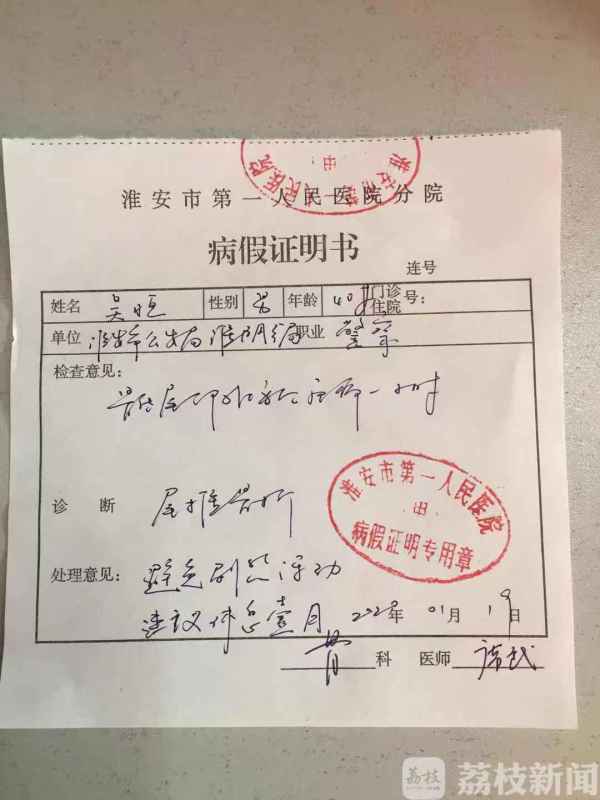 淮安市第一人民医院分院
病假证明书
连号
姓名 吴 性别 男 年龄 40岁 门诊 住院 号:
单位 淮安市公安局淮阴分局 职业 警察
检查意见:
诊 断 尾椎骨折
处理意见: 避免剧烈活动
建议休息壹月 2020年 01月 19日
骨 科 医师
淮安市第一人民医院
病假证明专用章
荔枝 荔枝新闻